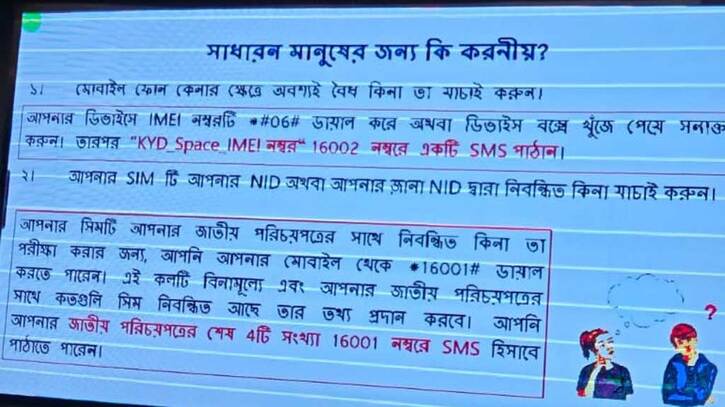 সাধারন মানুষের জন্য কি করনীয়?
১। মোবাইল ফোন কেনার ক্ষেত্রে অবশ্যই বৈধ কিনা তা যাচাই করুন।
আপনার ডিভাইসে IMEI নম্বরটি *#06# ডায়াল করে অথবা ডিভাইস বক্সে খুঁজে পেয়ে সনাক্ত
করুন। তারপর "KYD_Space_IMEI নম্বর" 16002 নম্বরে একটি SMS পাঠান।
২। আপনার SIM টি আপনার NID অথবা আপনার জানা NID দ্বারা নিবন্ধিত কিনা যাচাই করুন।
আপনার সিমটি আপনার জাতীয় পরিচয়পত্রের সাথে নিবন্ধিত কিনা তা
পরীক্ষা করার জন্য, আপনি আপনার মোবাইল থেকে *16001# ডায়াল
করতে পারেন। এই কলটি বিনামূল্যে এবং আপনার জাতীয় পরিচয়পত্রের
সাথে কতগুলি সিম নিবন্ধিত আছে তার তথ্য প্রদান করবে। আপনি
আপনার জাতীয় পরিচয়পত্রের শেষ 4টি সংখ্যা 16001 নম্বরে SMS হিসাবে
পাঠাতে পারেন।
?